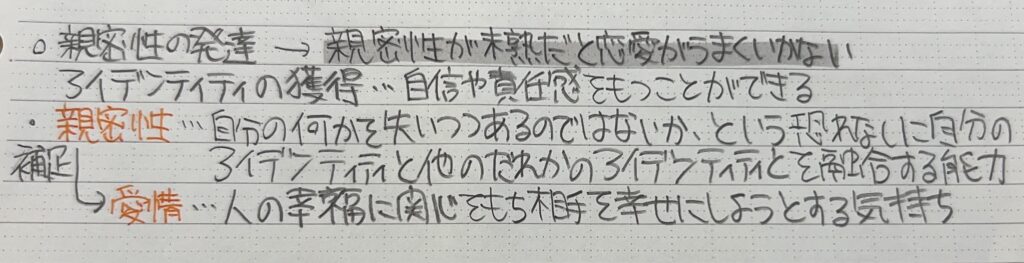 ○ 親密性の発達 → 親密性が未熟だと恋愛がうまくいかない
アイデンティティの獲得…自信や責任感をもつことができる
・親密性…自分の何かを失いつつあるのではないか、という恐れなしに自分の
アイデンティティと他のだれかのアイデンティティとを融合する能力
補足 → 愛情…人の幸福に関心をもち相手を幸せにしようとする気持ち